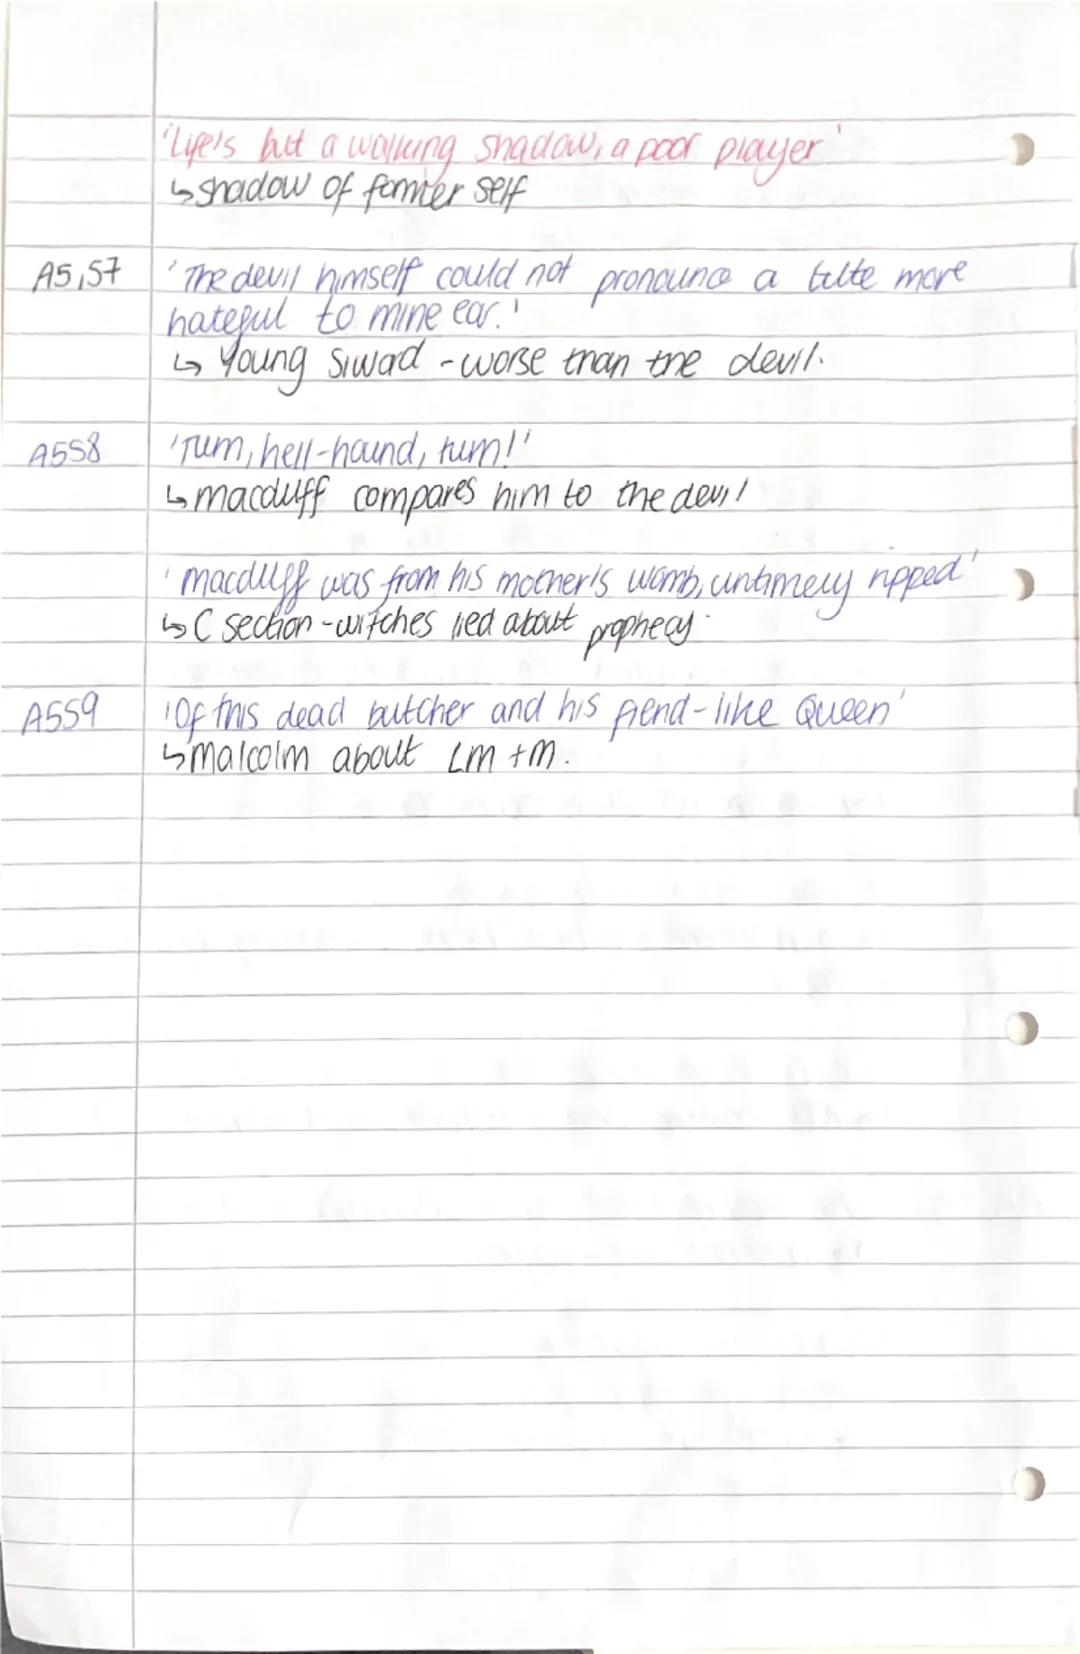 'Life's but a walking shadow, a poor player'
↳ shadow of former self
A5, S7 'The devil himself could not pronounce a title more
hateful to mine ear.'
↳ Young Siward - worse than the devil.
A5S8 'Turn, hell-hound, turn!'
↳ macduff compares him to the devil
'macduff was from his mother's womb, untimely ripped'
↳ C section - witches lied about prophecy.
A5S9 'Of this dead butcher and his fiend-like Queen'
↳ malcolm about LM + M.